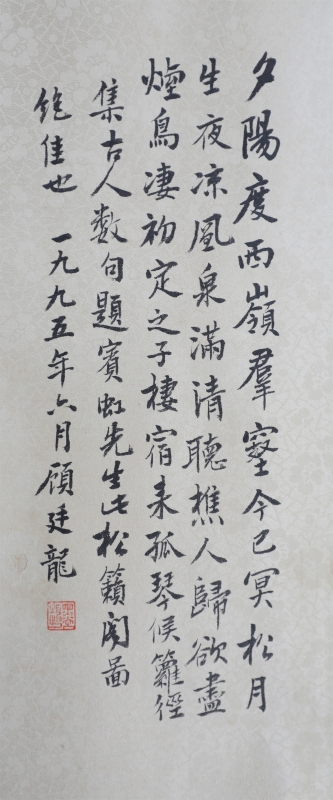 夕陽度西嶺羣壑今已冥松月
生夜凉風泉滿清聽樵人歸欲盡
煙鳥凄初定之子棲宿来孤琴候籬徑
集古人數句題賓虹先生此松籟閣圖
絶佳也 一九九五年六月顧廷龍